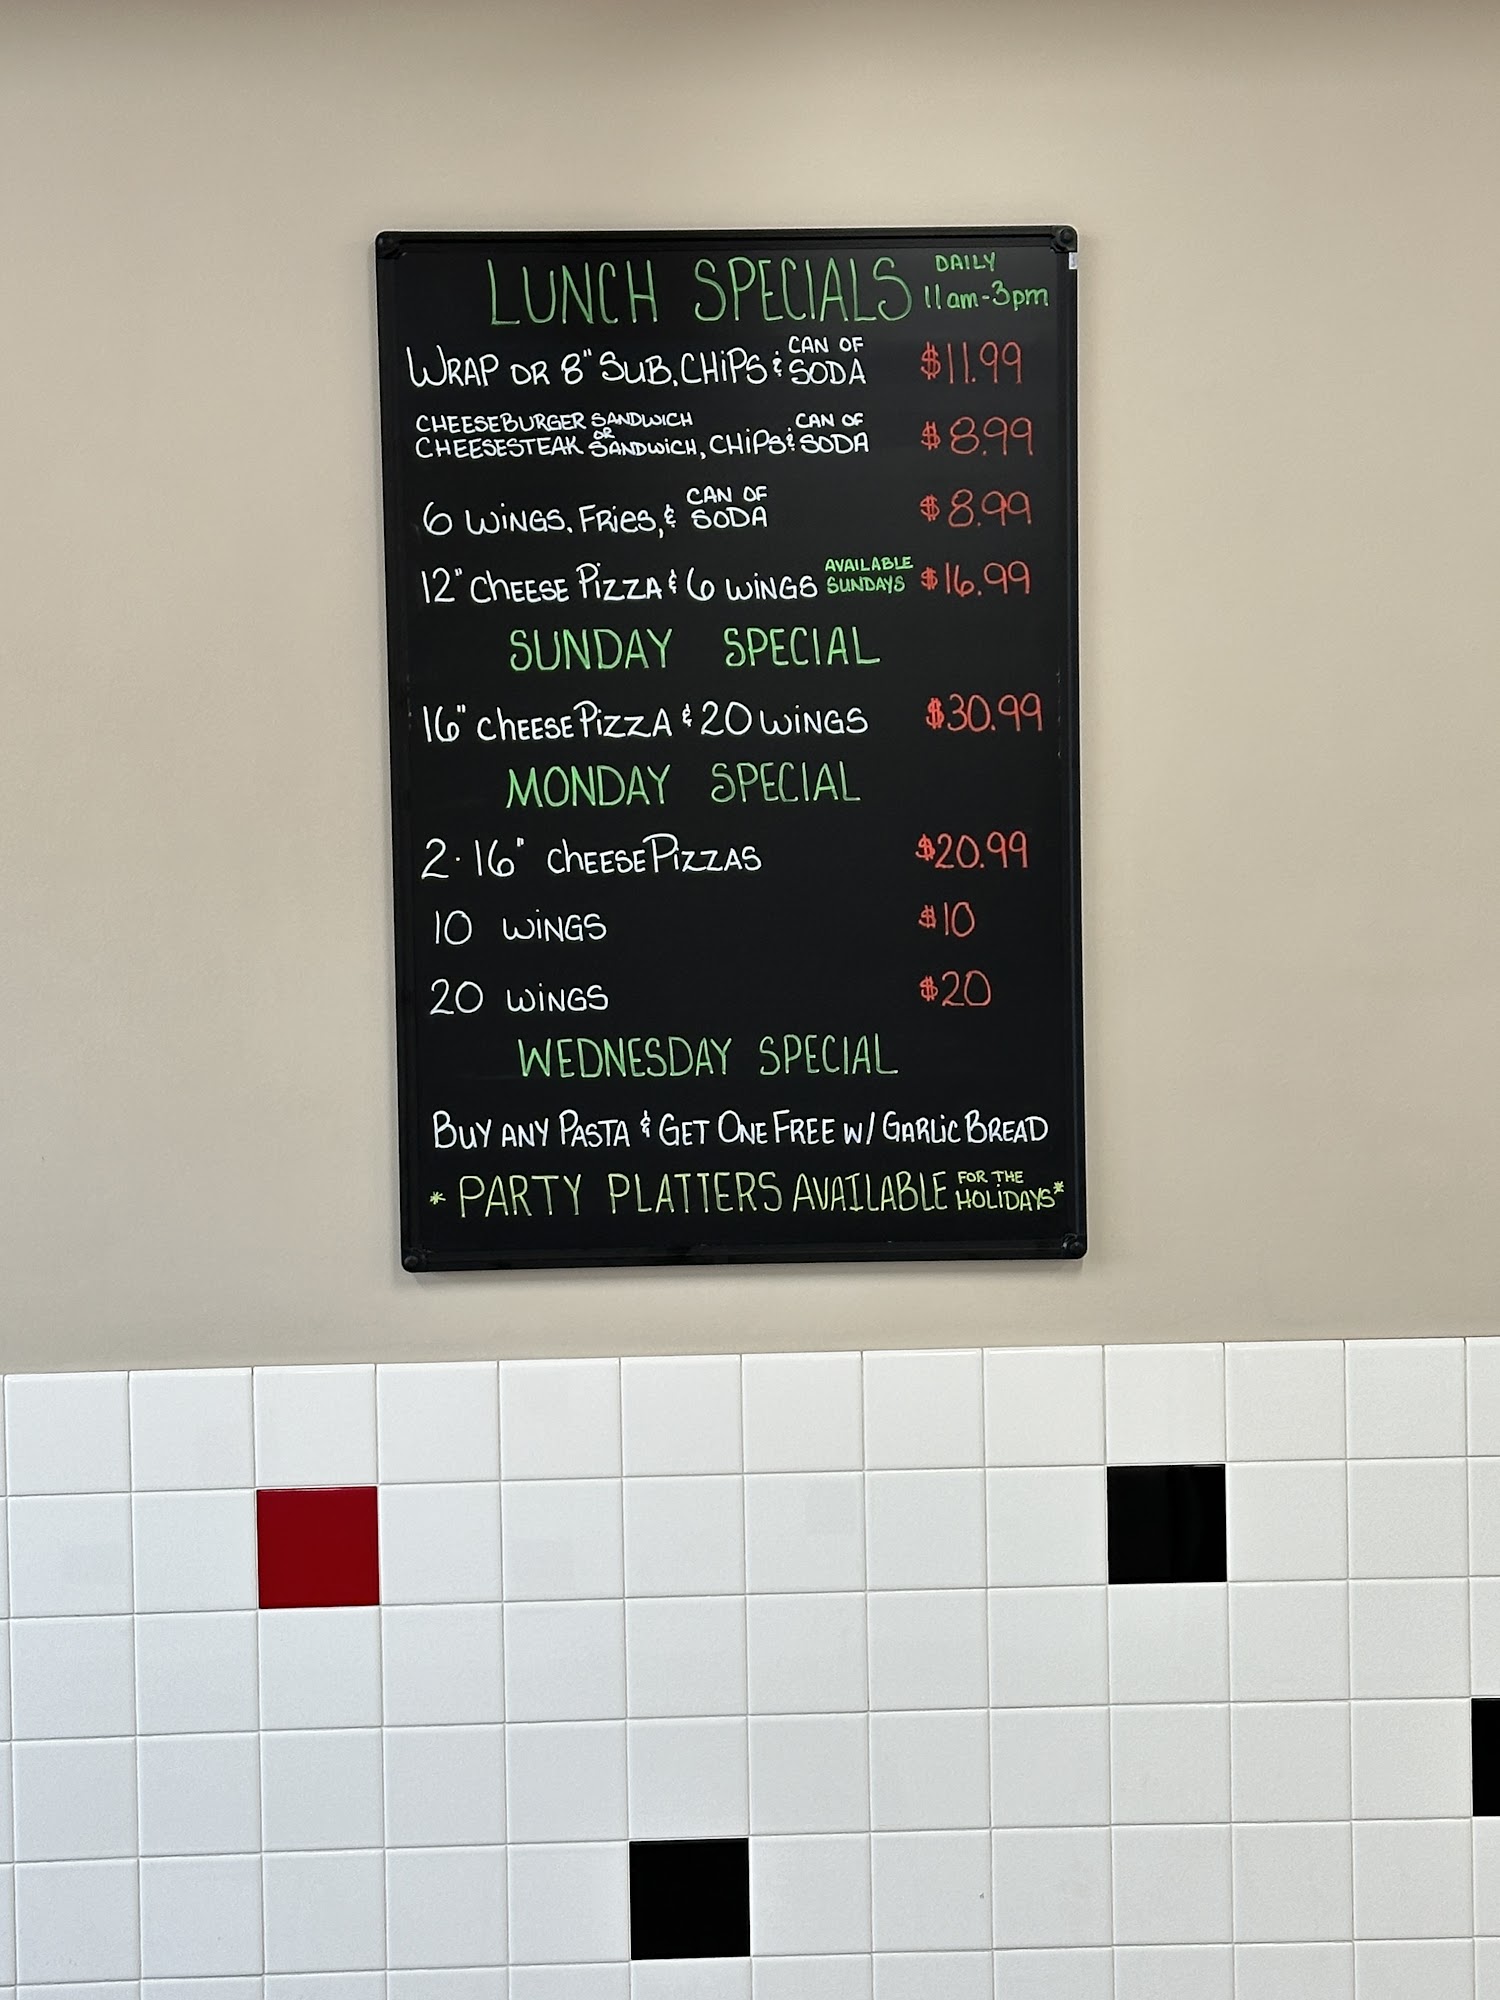 LUNCH SPECIALS DAILY 11am-3pm
WRAP OR 8" SUB, CHIPS & CAN OF SODA $11.99
CHEESEBURGER SANDWICH OR
CHEESESTEAK SANDWICH, CHIPS & CAN OF SODA $8.99
6 WINGS, FRIES, & CAN OF SODA $8.99
12" CHEESE PIZZA & 6 WINGS AVAILABLE SUNDAYS $16.99
SUNDAY SPECIAL
16" CHEESE PIZZA & 20 WINGS $30.99
MONDAY SPECIAL
2-16" CHEESE PIZZAS $20.99
10 WINGS $10
20 WINGS $20
WEDNESDAY SPECIAL
BUY ANY PASTA & GET ONE FREE W/ GARLIC BREAD
* PARTY PLATTERS AVAILABLE FOR THE HOLIDAYS *